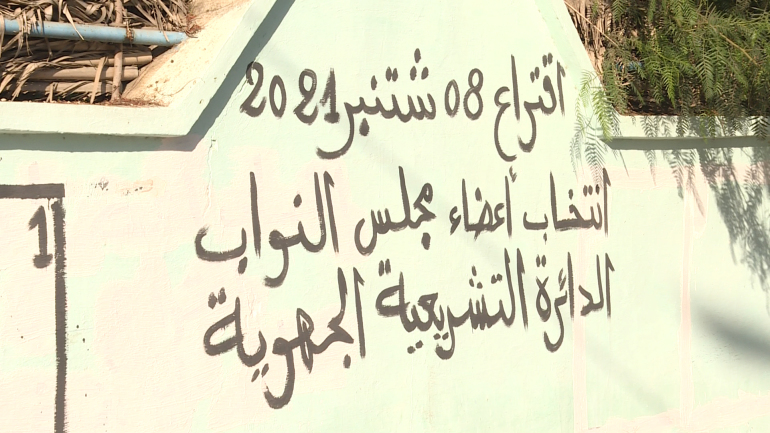 اقتراع 08 شتنبر 2021
انتخاب أعضاء مجلس النواب
الدائرة التشريعية الجهوية
1